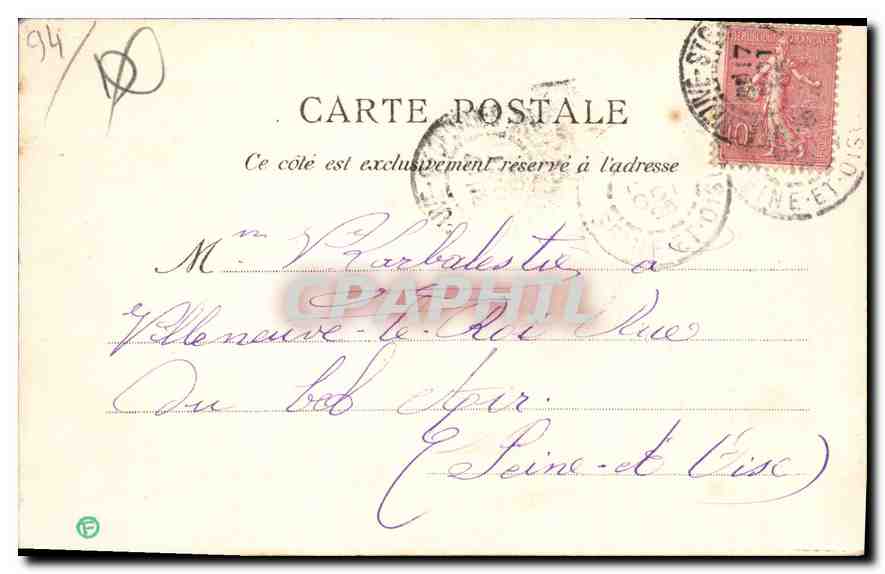 94/
CARTE POSTALE
Ce côté est exclusivement réservé à l'adresse
REPUBLIQUE FRANÇAISE
10
SEINE-ET-OISE
Mme Karbalestie à
CPAPHIL
Villeneuve-le-Roi Rue
du bel Air.
(Seine-et Oise)
F